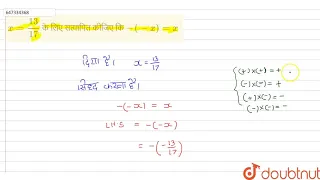 647333368
x = 13/17 के लिए सत्यापित कीजिए कि -(-x) = x
दिया है। x = 13/17
सिद्ध करना है।
-(-x) = x
LHS = -(-x)
= -(-13/17)
(+)×(+) = +
(-)×(-) = +
(+)×(-) = -
(-)×(+) = -
doubtnut